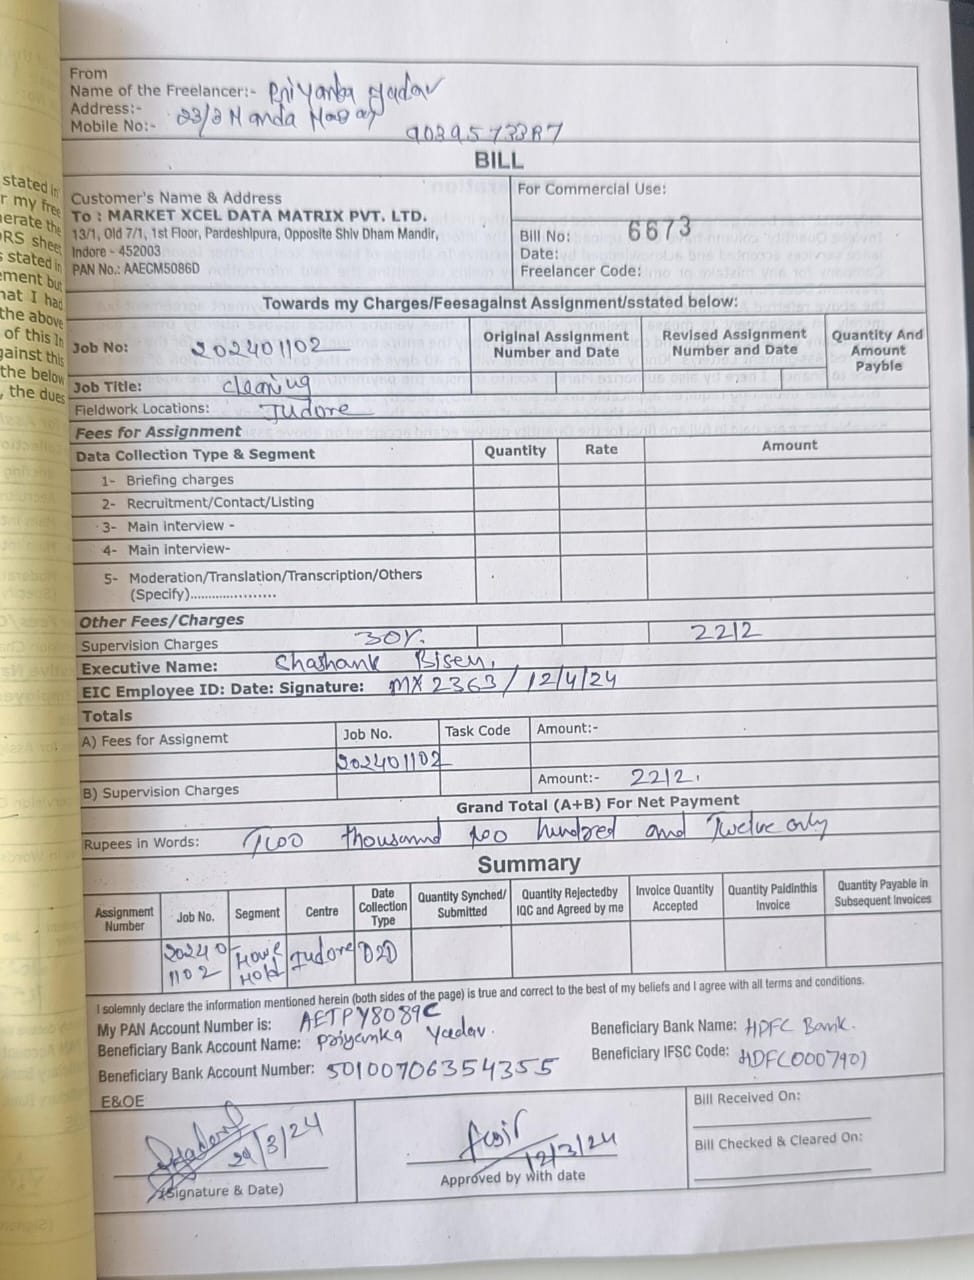 From
Name of the Freelancer:- Priyanka Yadav
Address:- 23/3 Nanda Nagar
Mobile No:-
BILL
Customer's Name & Address
To : MARKET XCEL DATA MATRIX PVT. LTD.
13/1, Old 7/1, 1st Floor, Pardeshipura, Opposite Shiv Dham Mandir,
Indore - 452003
PAN No.: AAECM5086D
For Commercial Use:
Bill No: 6673
Date:
Freelancer Code:
Towards my Charges/Feesagainst Assignment/sstated below:
Job No: 202401102
Original Assignment Number and Date
Revised Assignment Number and Date
Quantity And Amount Payble
Job Title: cleaning
Fieldwork Locations: Indore
Fees for Assignment
Data Collection Type & Segment Quantity Rate Amount
1- Briefing charges
2- Recruitment/Contact/Listing
3- Main interview -
4- Main interview-
5- Moderation/Translation/Transcription/Others
(Specify)....................
Other Fees/Charges
Supervision Charges 30%. 2212
Executive Name: Shashank Bisen,
EIC Employee ID: Date: Signature: MX2363/12/4/24
Totals
A) Fees for Assignemt Job No. Task Code Amount:-
202401102
B) Supervision Charges Amount:- 2212.
Grand Total (A+B) For Net Payment
Rupees in Words: Two thousand two hundred and Twelve only
Summary
Assignment Number
Job No.
Segment
Centre
Date Collection Type
Quantity Synched/ Submitted
Quantity Rejectedby IQC and Agreed by me
Invoice Quantity Accepted
Quantity Paidinthis Invoice
Quantity Payable in Subsequent Invoices
20240 1102
Hold
Indore
D2D
I solemnly declare the information mentioned herein (both sides of the page) is true and correct to the best of my beliefs and I agree with all terms and conditions.
My PAN Account Number is: AETPY8089C
Beneficiary Bank Account Name: Priyanka Yadav.
Beneficiary Bank Account Number: 50100706354355
Beneficiary Bank Name: HDFC Bank.
Beneficiary IFSC Code: HDFC0007901
E&OE
/3/24
(Signature & Date)
12/3/24
Approved by with date
Bill Received On:
Bill Checked & Cleared On:
stated in
r my free
nerate the
ORS sheet
s stated in
ement but
hat I had
the above
of this In
gainst this
the below
, the dues